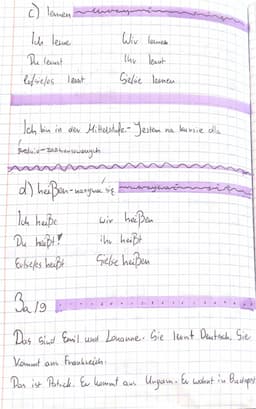 c) lernen
Ich lerne Wir lernen
Du lernst Ihr lernt
Er/sie/es lernt Sie/sie lernen
Ich bin in der Mittelstufe - Jestem na kursie dla
d) heißen - nazywać się
Ich heiße wir heißen
Du heißt! ihr heißt
Er/sie/es heißt Sie/sie heißen
3a/9
Das sind Emil und Lorianne. Sie lernt Deutsch. Sie
kommt aus Frankreich.
Das ist Patrick. Er kommt aus Ungarn. Er wohnt in Budapest